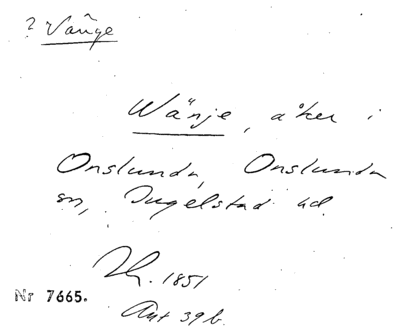 ? Vånge
Wänje, åker i
Onslunda, Onslunda
sn, Ingelstad hd.
1851
Nr 7665.
Akt 39 b.